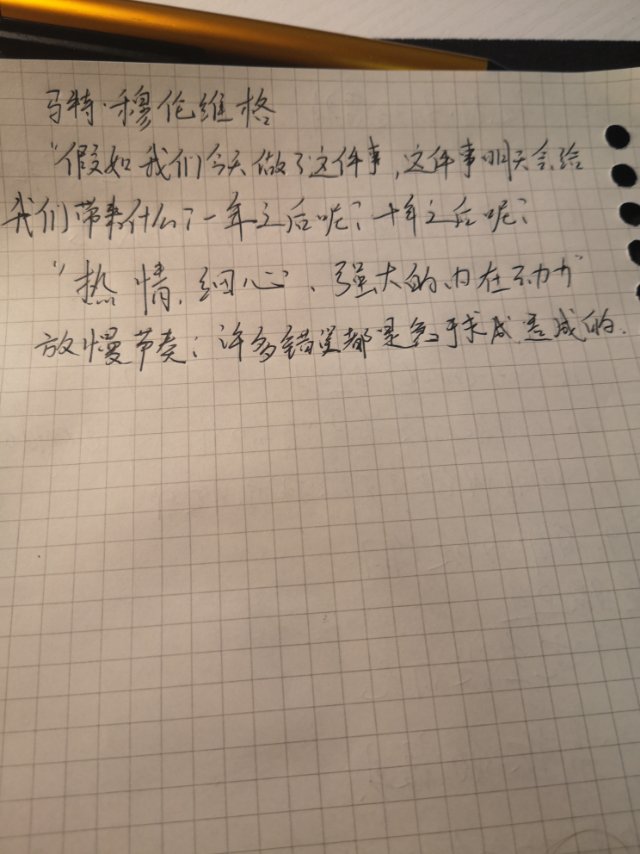 马特·穆伦维格
"假如我们今天做了这件事,这件事明天会给
我们带来什么?一年之后呢?十年之后呢?
"热情、细心、强大的内在动力"
放慢节奏:许多错误都是急于求成造成的.